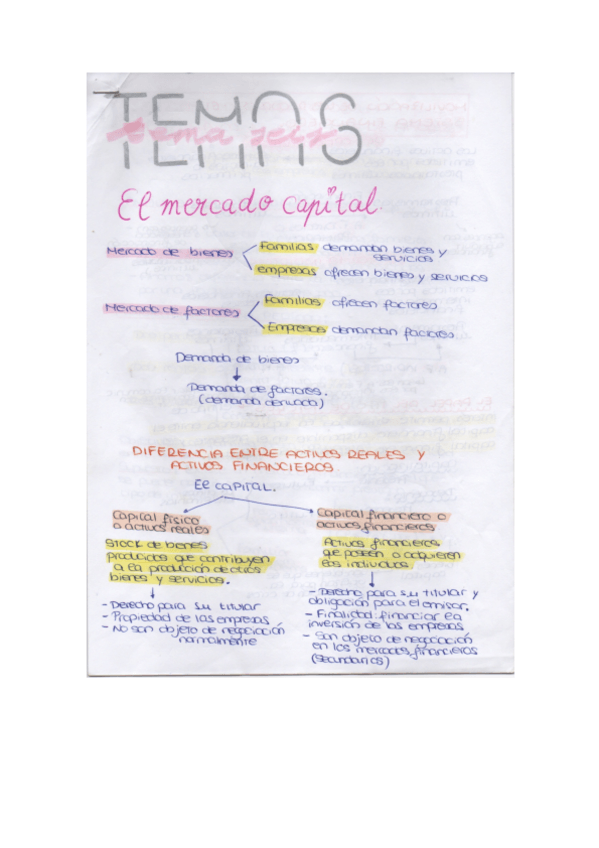 TEMAS
tema seis
El mercado capital
Mercado de bienes
Familias demandan bienes y
servicios
empresas ofrecen bienes y servicios
Mercado de factores
Familias ofrecen factores
Empresas demandan factores
Demanda de bienes
Demanda de factores.
(demanda derivada)
DIFERENCIA ENTRE ACTIVOS REALES Y
ACTIVOS FINANCIEROS.
El capital.
Capital físico
o activos reales
Stock de bienes
producidos que contribuyen
a la producción de otros
bienes y servicios.
- Derecho para su titular
- Propiedad de las empresas
- No son objeto de negociación
normalmente
Capital financiero o
activos financieros
Activos financieros
que poseen o adquieren
los individuos
- Derecho para su titular y
obligación para el emisor.
- Finalidad: financiar la
inversión de las empresas
- Son objeto de negociación
en los mercados financieros
(secundarios)